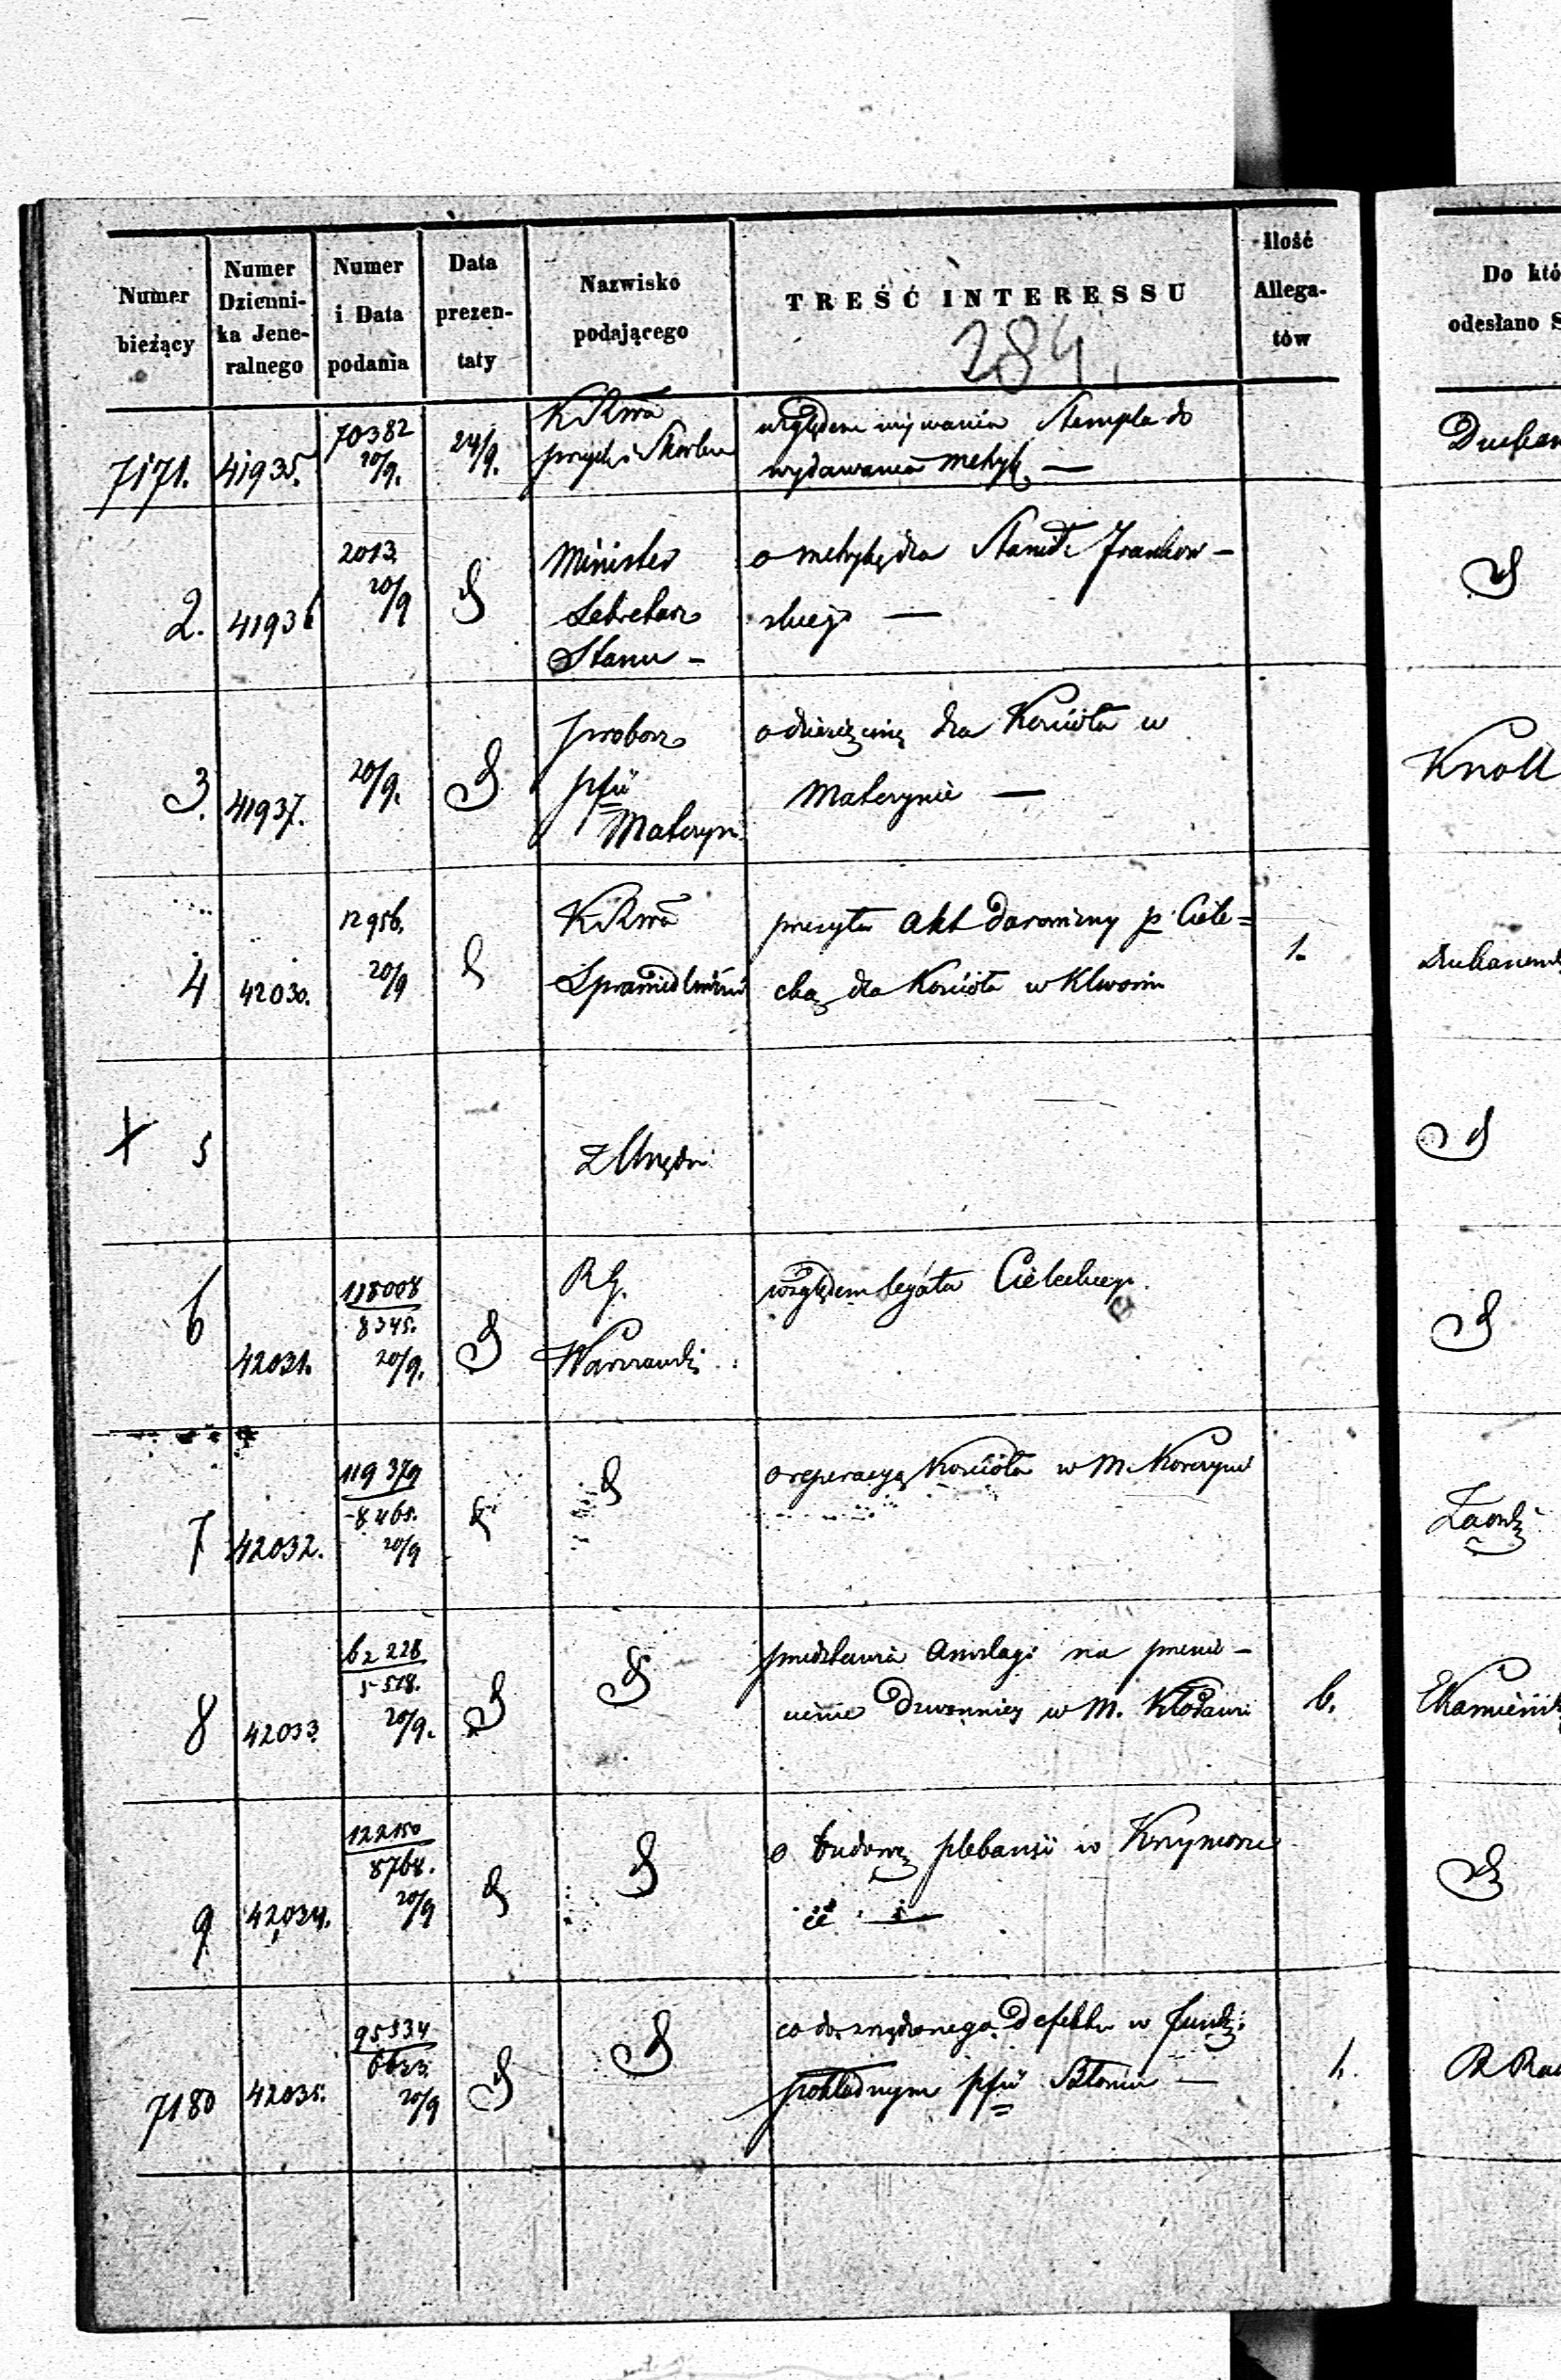 Numer bieżący
Numer Dzienni-ka Jene-ralnego
Numer i Data podania
Data prezen-taty
Nazwisko podającego
TREŚĆ INTERESSU
284.
Ilość Allega-tów
Do któ
odesłano S
7171. 41935. 70382 20/9. 24/9. K Rwa
przych: i Skarbu
względem używania Stempla do
wydawania metryk —
2. 41936 2013 20/9 Minister
Sekretarz
Stanu -
o metrykę dla Stanisł: Frankow-
skiego —
3. 41937. 20/9. Proboszcz
pfii
Materyn
o dziesięcinę dla Kościoła w
Materynie —
Knoll
4 42030. 12956. 20/9 K. Rwa
Sprawiedliwości
przesyła akt darowizny p. Ciele=
cką dla Kościoła w Klwowie
1.
X 5 z Urzędu
6 42031. 118008
8345.
20/9. RG.
Warszawski
względem legatu Cieleckiego.
7 42032. 119379
8465.
20/9
o reperacyą Kościoła w M. Korczynie
8 42033 62228
5528.
20/9.
przedstawia anszlagi na przenie-
sienie Dzwonnicy w M. Kłodawie
6.
9 42034. 122150
8768.
20/9
o budowę plebanii w Krzymow
ie —
7180 42035. 95334
6633.
20/9
co do zrządzonego Defektu w fund:
pokładnym pfii Błonie —
1.